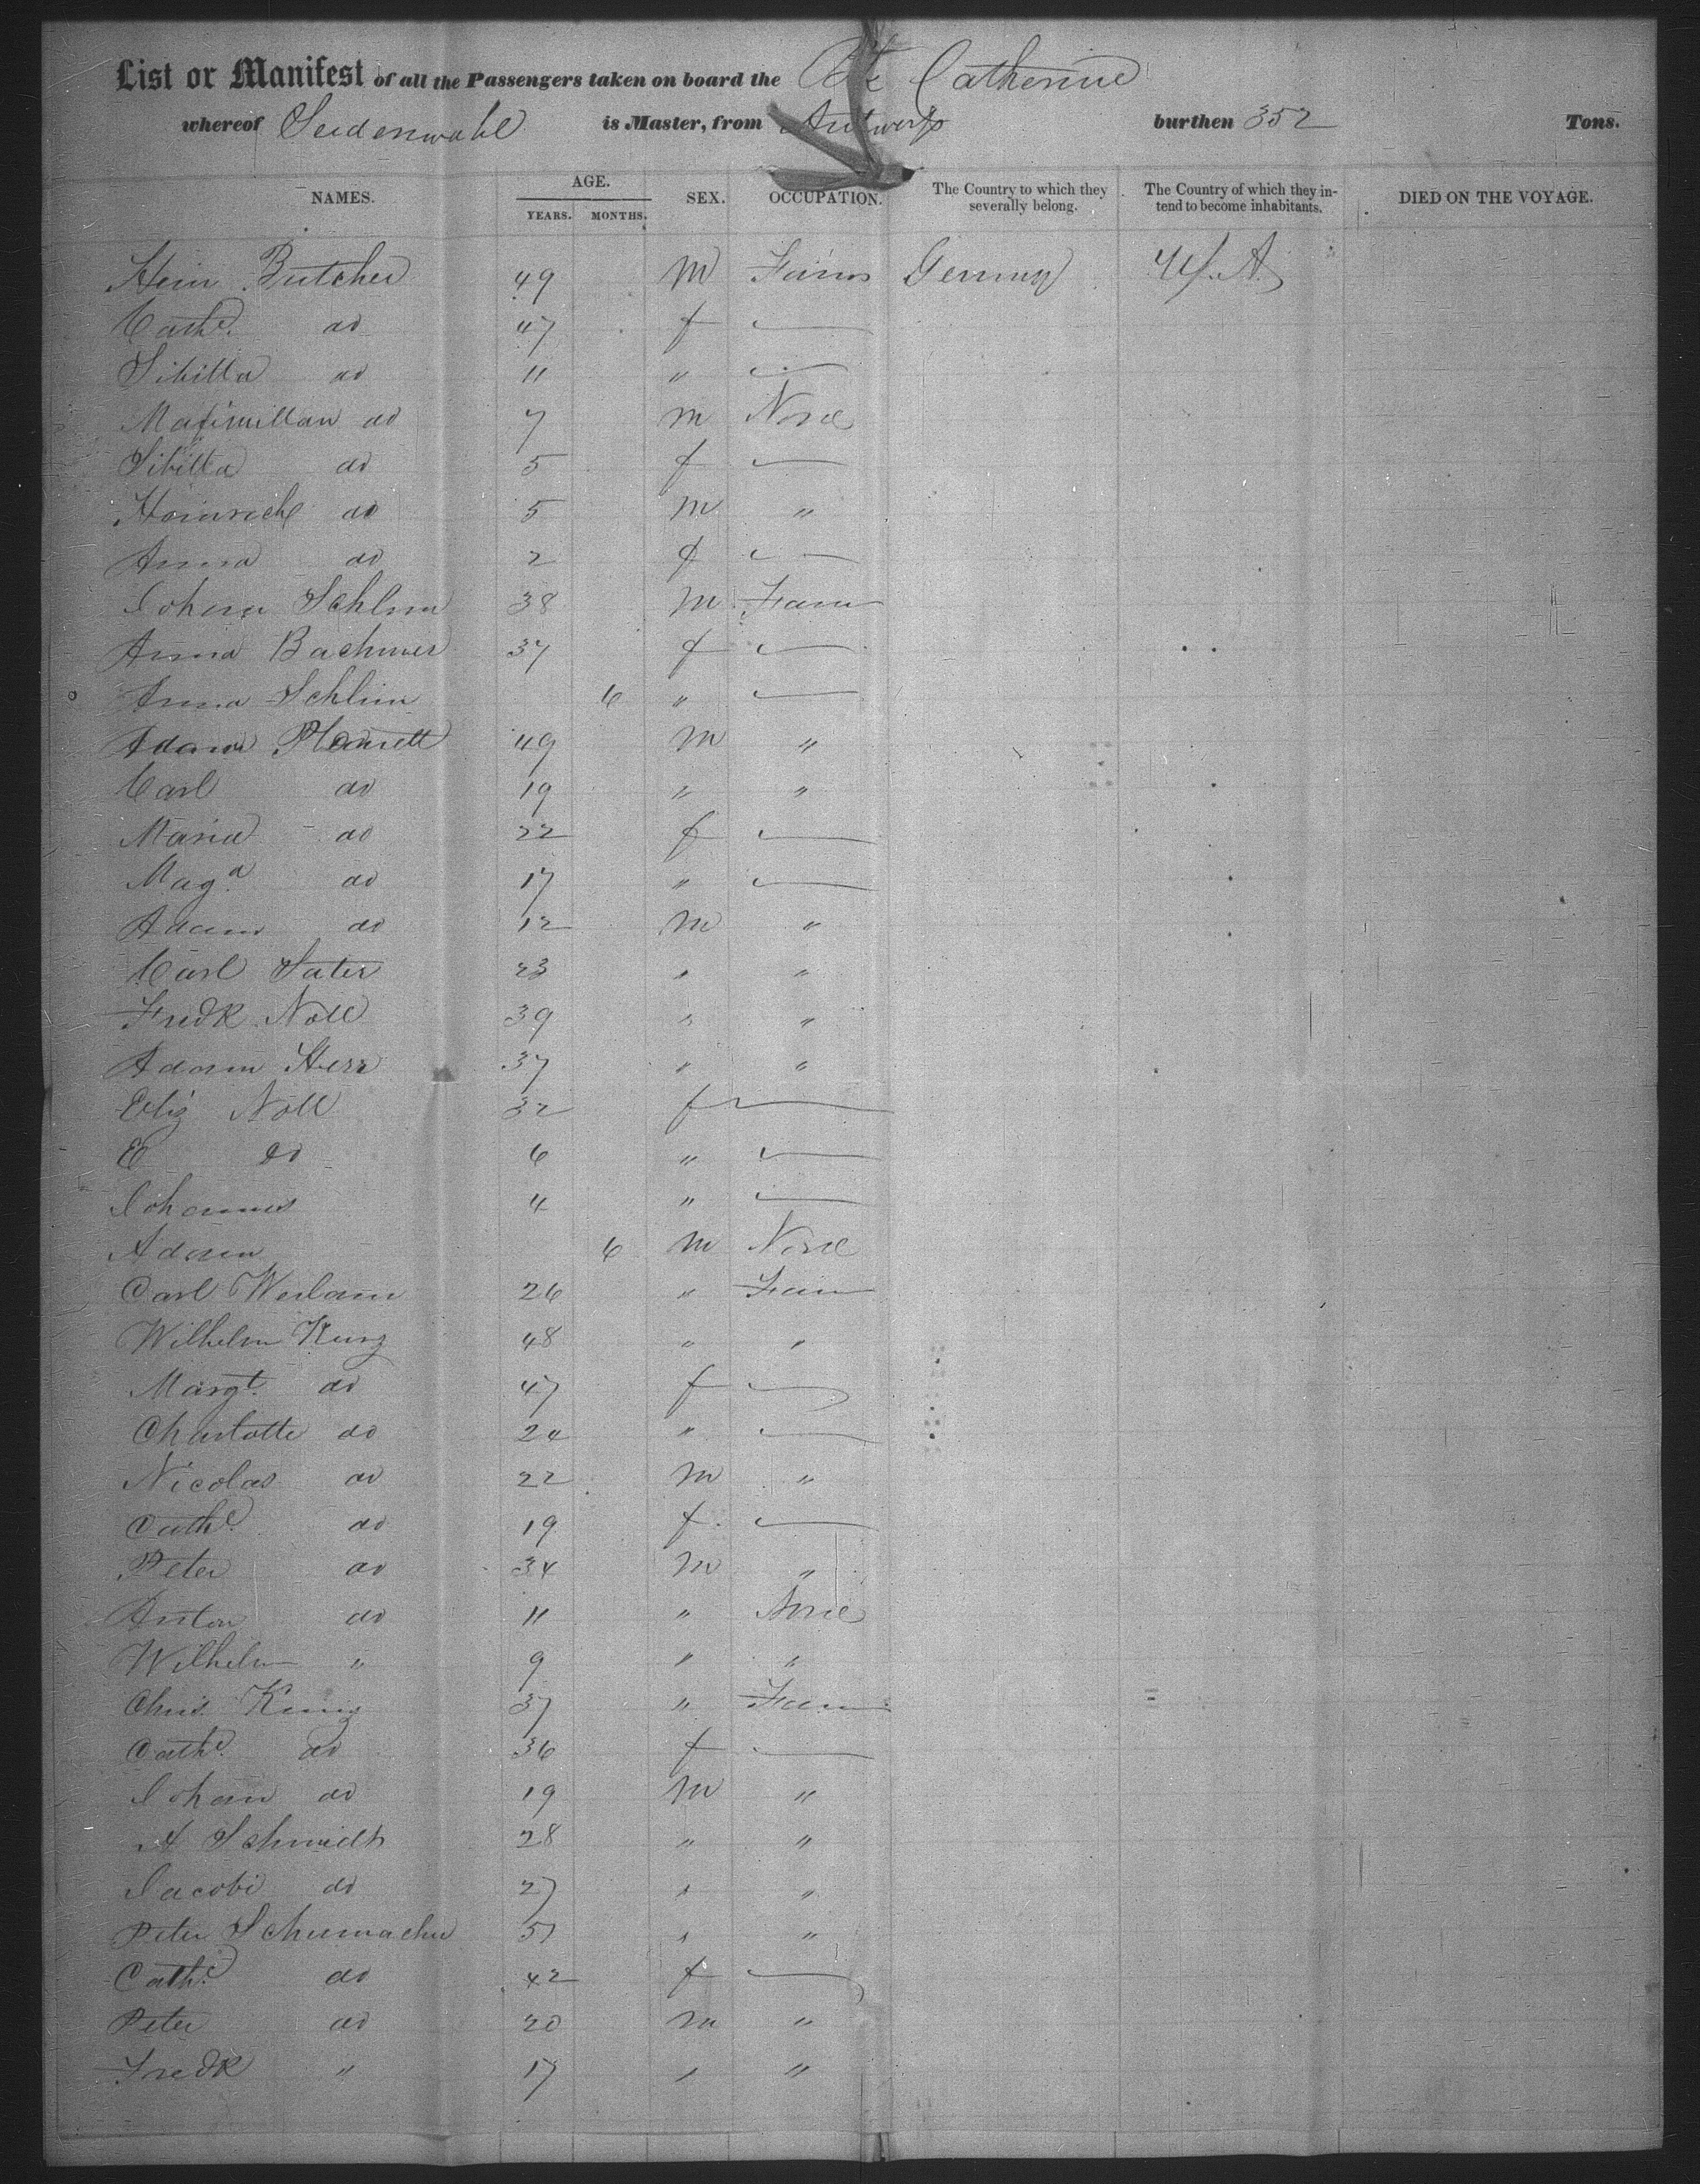 List or Manifest of all the Passengers taken on board the Catherine
whereof Seidenwahl is Master, from Antwerp burthen 352 Tons.
NAMES. AGE. YEARS. MONTHS. SEX. OCCUPATION. The Country to which they severally belong. The Country of which they intend to become inhabitants. DIED ON THE VOYAGE.
Hein Butcher 49 M Farm Germany U.S.A.
Cathe. do 47 f
Sibilla do 11 "
Maximillan do 7 M None
Sibilla do 5 f
Heinrich do 5 M "
Anna do 2 f
Johann Schlim 38 M Farm
Anna Bachmer 37 f
Anna Schlim 6 "
Adam 49 M "
Carl do 19 " "
Maria do 22 f
Maga. do 17 "
Adam do 12 M "
Carl Sater 23 " "
Fredk Noll 39 " "
Adam Herr 37 " "
Eliz Noll 32 f
E do 6 "
Johannes 4 "
Adam 6 M None
Carl Weilam 26 " Farm
Wilhelm Kunz 48 " "
Margt. do 47 f
Charlotte do 24 "
Nicolas do 22 M "
Cathe. do 19 f
Peter do 34 M "
Anton do 11 " None
Wilhelm " 9 " "
Chris Kunz 37 " Farm
Cathe. do 36 f
Johan do 19 M "
A Schmidt 28 " "
Jacobi do 27 " "
Peter Schumacher 51 " "
Cathe. do 42 f
Peter do 20 M "
Fredk " 17 " "